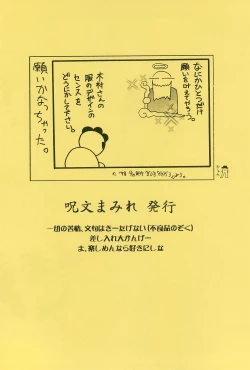 なにかひとつだけ
願いを叶えてやろう。
木村さんの
服のデザインの
センスを
どうにかして下さい。
願いかなっちゃった。
呪文まみれ 発行
一切の苦情、文句はきーたげない(不良品のぞく)
差し入れ大かんげー
ま、楽しめんなら好きにしな